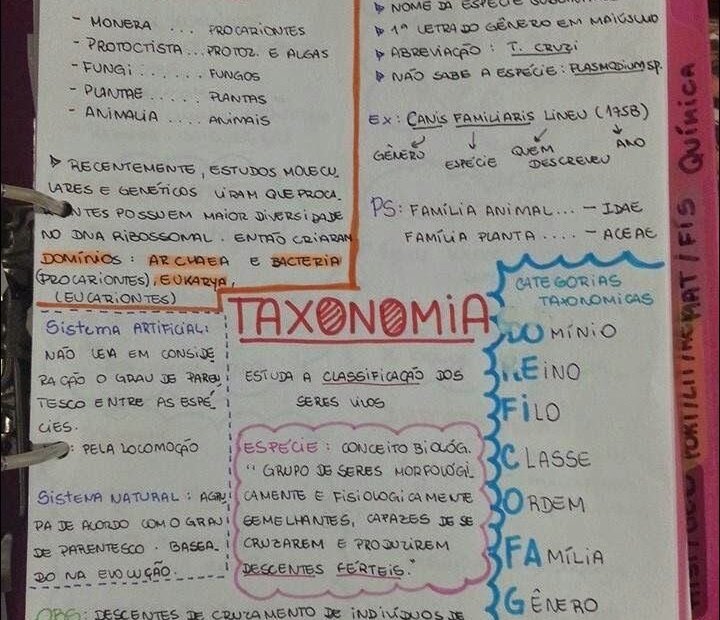 - MONERA ... PROCARIONTES
- PROTOCTISTA ... PROTOZ. E ALGAS
- FUNGI ...... FUNGOS
- PLANTAE ..... PLANTAS
- ANIMALIA .... ANIMAIS
RECENTEMENTE, ESTUDOS MOLECU
LARES E GENÉTICOS VIRAM QUE PROCA
NTES POSSUEM MAIOR DIVERSIDADE
NO DNA RIBOSSOMAL. ENTÃO CRIARAM
DOMÍNIOS: ARCHAEA E BACTERIA
(PROCARIONTES), EUKARYA,
(EUCARIONTES)
NOME DA ESPÉCIE
1ª LETRA DO GÊNERO EM MAIÚSCULO
ABREVIAÇÃO: T. CRUZI
NÃO SABE A ESPÉCIE: PLASMODIUM SP.
EX: CANIS FAMILIARIS LINEU (1758)
GÊNERO ESPÉCIE QUEM DESCREVEU ANO
PS: FAMÍLIA ANIMAL ... - IDAE
FAMÍLIA PLANTA .... - ACEAE
TAXONOMIA
ESTUDA A CLASSIFICAÇÃO DOS
SERES VIVOS
Sistema ARTIFICIAL:
NÃO LEVA EM CONSIDE
RAÇÃO O GRAU DE PAREN
TESCO ENTRE AS ESPÉ
CIES.
: PELA LOCOMOÇÃO
Sistema NATURAL: AGRU
PA DE ACORDO COM O GRAU
DE PARENTESCO. BASEA
DO NA EVOLUÇÃO.
ESPÉCIE: CONCEITO BIOLÓG.
"GRUPO DE SERES MORFOLÓGI
CAMENTE E FISIOLOGICAMENTE
SEMELHANTES, CAPAZES DE SE
CRUZAREM E PRODUZIREM
DESCENTES FÉRTEIS."
CATEGORIAS
TAXONOMICAS
DOMÍNIO
REINO
FILO
CLASSE
ORDEM
FAMÍLIA
GÊNERO
OBS: DESCENTES DE CRUZAMENTO DE INDIVÍDUOS DE
MAT/FÍS QUÍMICA